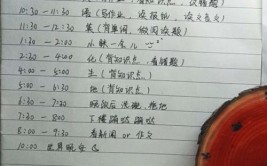 10:30 — 11:30 语（写作业，读报纸，读文言文）
11:30 — 12:30 英（背单词，做阅读题）
1:00 — 2:00 小睡一会儿
2:00 — 4:00 化（背知识点，看错题）
4:00 — 5:00 生（背知识点）
5:00 — 6:00 地（背知识点）
6:30 — 7:20 晚饭后洗碗，拖地
7:00 — 8:00 下楼蹦哒蹦哒
8:00 — 9:30 看新闻 or 作文
10:00 世界晚安